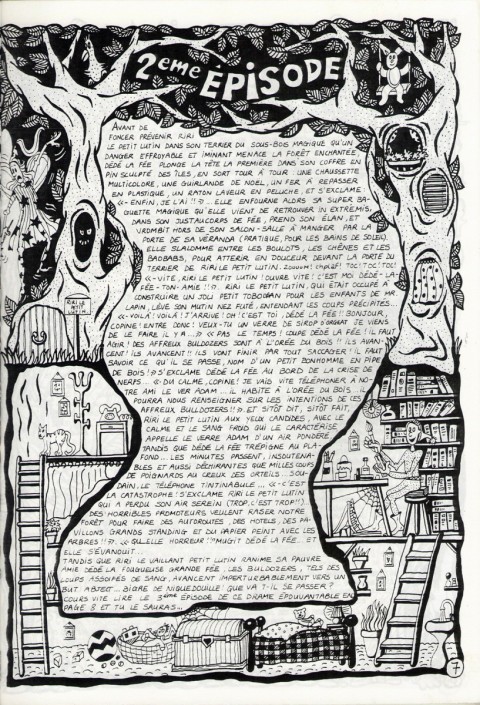 2eme ÉPISODE
AVANT DE
FONCER PRÉVENIR RIRI
LE PETIT LUTIN DANS SON TERRIER DU SOUS-BOIS MAGIQUE QU'UN
DANGER EFFROYABLE ET IMINANT MENACE LA FORÊT ENCHANTÉE,
DÉDÉ LA FÉE PLONGE LA TÊTE LA PREMIÈRE DANS SON COFFRE EN
PIN SCULPTÉ DES ÎLES, EN SORT TOUR À TOUR UNE CHAUSSETTE
MULTICOLORE, UNE GUIRLANDE DE NOËL, UN FER À REPASSER
EN PLASTIQUE, UN RATON LAVEUR EN PELUCHE, ET S'EXCLAME:
«-ENFIN, JE L'AI!!». ELLE ENFOURNE ALORS SA SUPER BA-
GUETTE MAGIQUE QU'ELLE VIENT DE RETROUVER IN EXTREMIS,
DANS SON JUSTAUCORPS DE FÉE, PREND SON ÉLAN, ET
VROMBIT HORS DE SON SALON-SALLE À MANGER PAR LA
PORTE DE SA VÉRANDA (PRATIQUE, POUR LES BAINS DE SOLEIL).
ELLE SLALOMME ENTRE LES BOULOTS, LES CHÊNES ET LES
BAOBABS, POUR ATTERIR EN DOUCEUR DEVANT LA PORTE DU
TERRIER DE RIRI LE PETIT LUTIN. TOC! TOC! TOC!
«-VITE, RIRI LE PETIT LUTIN! OUVRE VITE! C'EST MOI DÉDÉ-LA-
FÉE-TON-AMIE!!». RIRI LE PETIT LUTIN, QUI ÉTAIT OCCUPÉ À
CONSTRUIRE UN JOLI PETIT TOBOGAN POUR LES ENFANTS DE MR.
LAPIN, LÈVE SON MUTIN NEZ FUTÉ, ENTENDANT LES COUPS PRÉCIPITÉS...
«-VOILÀ! VOILÀ! J'ARRIVE! OH! C'EST TOI, DÉDÉ LA FÉE!! BONJOUR,
COPINE! ENTRE DONC! VEUX-TU UN VERRE DE SIROP D'ORGEAT JE VIENS
DE LE FAIRE IL Y A...» «PAS LE TEMPS! COUPE DÉDÉ LA FÉE! IL FAUT
AGIR! DES AFFREUX BULLDOZERS SONT À L'ORÉE DU BOIS!! ILS AVAN-
CENT! ILS AVANCENT!! ILS VONT FINIR PAR TOUT SACCAGER! IL FAUT
SAVOIR CE QU'IL SE PASSE, NOM D'UN PETIT BONHOMME EN PIPE
DE BOIS!» S'EXCLAME DÉDÉ LA FÉE AU BORD DE LA CRISE DE
NERFS... «DU CALME, COPINE! JE VAIS VITE TÉLÉPHONER À NO-
TRE AMI LE VER ADAM... IL HABITE À L'ORÉE DU BOIS... IL
POURRA NOUS RENSEIGNER SUR LES INTENTIONS DE CES
AFFREUX BULLDOZERS!!» ET SITÔT DIT, SITÔT FAIT,
RIRI LE PETIT LUTIN AUX YEUX CANDIDES, AVEC LE
CALME ET LE SANG FROID QUI LE CARACTÉRISE
APPELLE LE VERRE ADAM D'UN AIR PONDÉRÉ
TANDIS QUE DÉDÉ LA FÉE TRÉPIGNE AU PLA-
FOND... LES MINUTES PASSENT, INSOUTENA-
BLES ET AUSSI DÉCHIRANTES QUE MILLES COUPS
DE POIGNARDS AU CREUX DES ORTEILS... SOU-
DAIN, LE TÉLÉPHONE TINTINABULE... «-C'EST
LA CATASTROPHE! S'EXCLAME RIRI LE PETIT LUTIN
QUI A PERDU SON AIR SEREIN (TROP, C'EST TROP!!).
DES HORRIBLES PROMOTEURS VEULENT RASER NOTRE
FORÊT POUR FAIRE DES AUTOROUTES, DES HOTELS, DES PA-
VILLONS GRANDS STANDING ET DU PAPIER PEINT AVEC LES
ARBRES!!». «QU'ELLE HORREUR!!» MUGIT DÉDÉ LA FÉE. ET
ELLE S'ÉVANOUIT...
TANDIS QUE RIRI LE VAILLANT PETIT LUTIN RANIME SA PAUVRE
AMIE DÉDÉ LA FOUGUEUSE GRANDE FÉE, LES BULDOZERS, TELS DES
LOUPS ASSOIFÉS DE SANG, AVANCENT IMPERTURBABLEMENT VERS UN
BUT ABJECT... BIGRE DE NIGUEDOUILLE! QUE VA-T-IL SE PASSER?
COURS VITE LIRE LE 3ème ÉPISODE DE CE DRAME ÉPOUVANTABLE EN
PAGE 8 ET TU LE SAURAS...
RIRI LE
PETIT
LUTIN
7